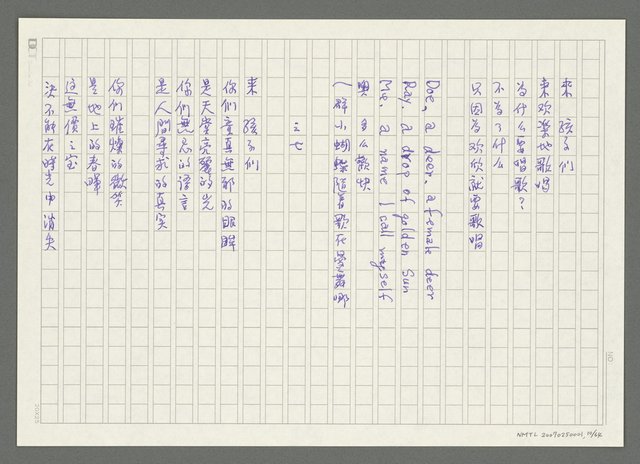 來 孩子们
來欢樂地歌唱
为什么要唱歌？
不为了什么
只因为欢欣就要歌唱
Doe, a deer, a female deer
Ray. a drop of golden Sun
Me. a name I call myself
興 多么歡快
一群小蝴蝶隨着歌在曼舞哪
之七
來 孩子们
你们童真無邪的眼眸
是天堂亮麗的光
你们無忌的語言
是人間尋求的真实
你们璀燦的歡笑
是地上的春暉
这無價之宝
決不能在時光中消失
NMTL 20070250001, 19/64
20X25
NO